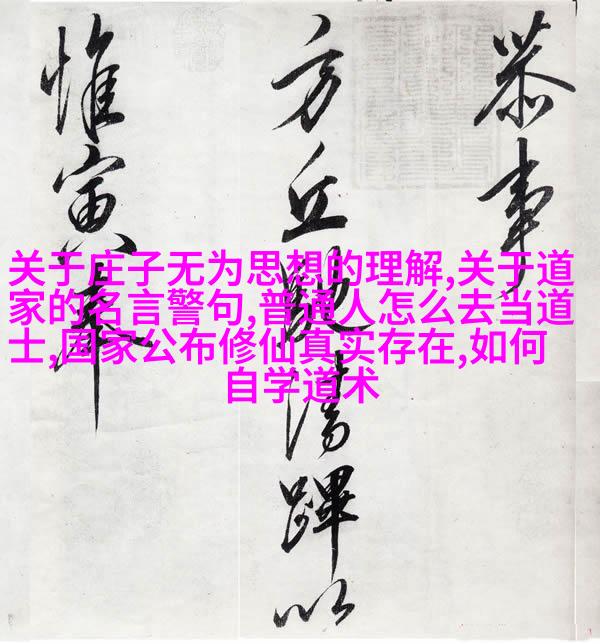 恭事
方丘清蹕以
惟寅奉
关于庄子无为思想的理解,关于道
家的名言警句,普通人怎么去当道
士,国家公布修仙真实存在,如何
自学道术